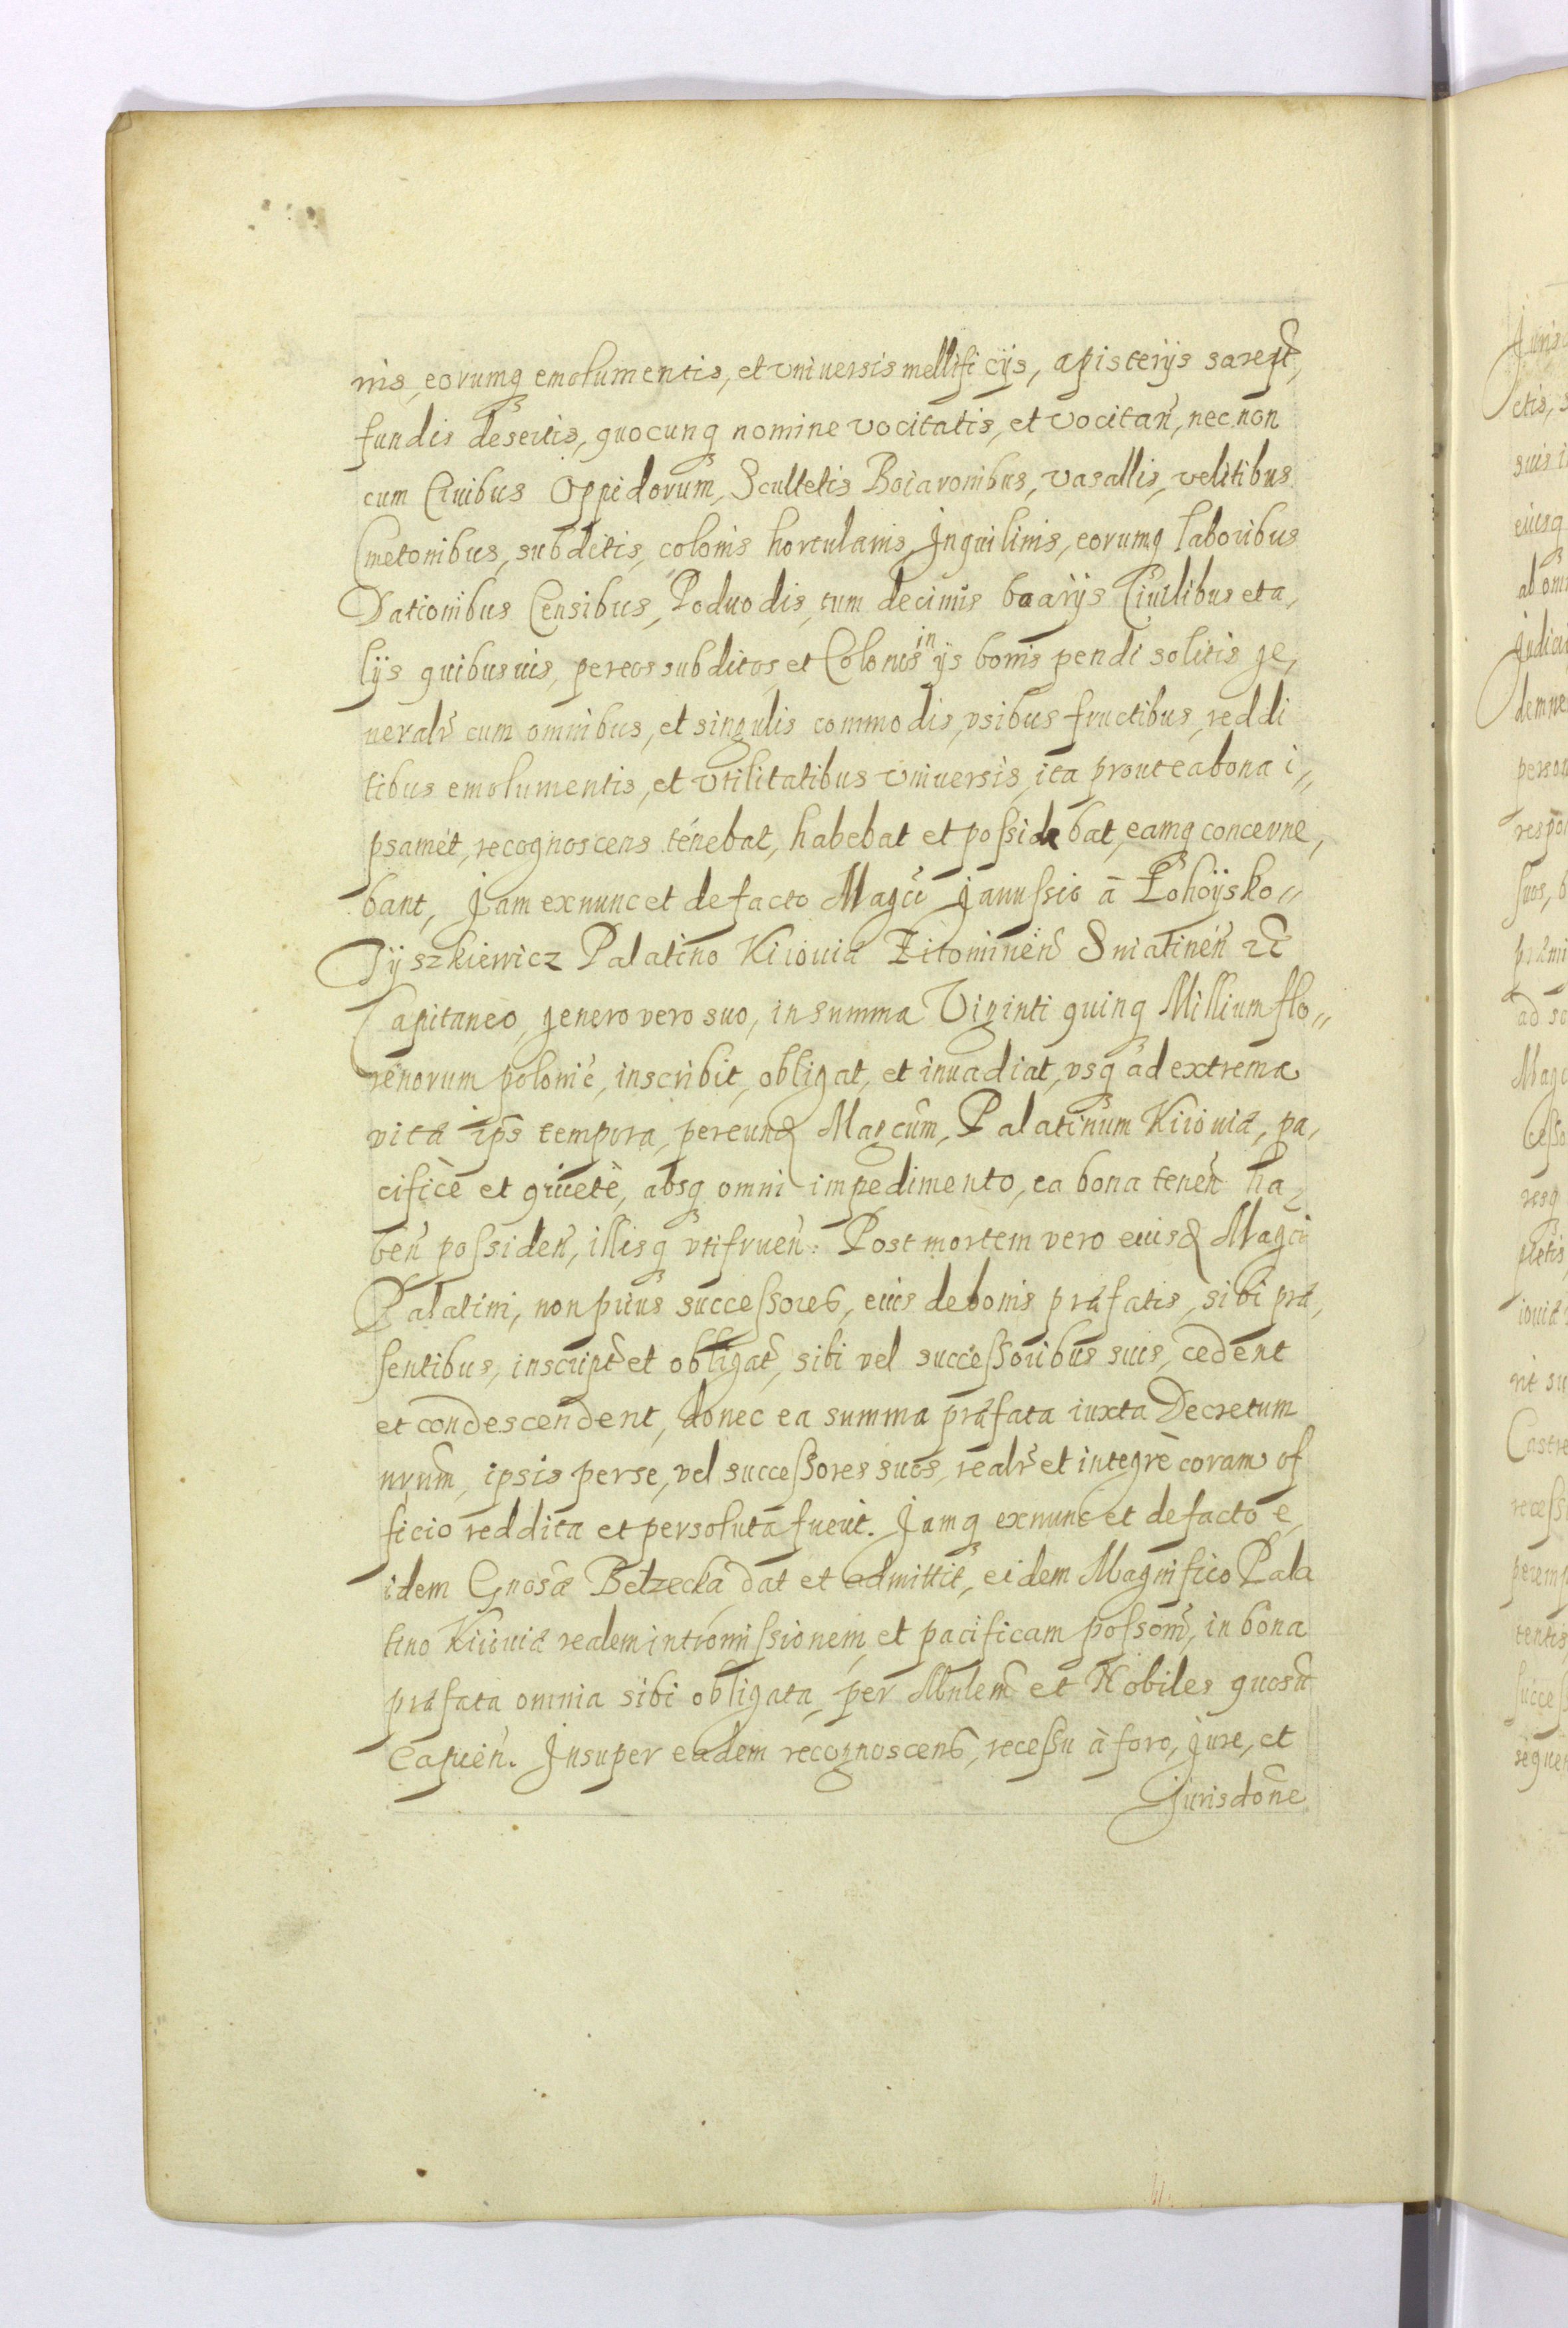 nis, eorumq emolumentis, et vniuersis mellificijs, apisterijs sarept,
fundis desertis, quocunq nomine vocitatis, et vocitan, nec non
cum Ciuibus Oppidorum, Scultetis Boiaronibus, vasallis, velitibus
Cmetonibus, subditis, colonis hortulanis, Inquilinis, eorumq laboribus
Dationibus Censibus, Poduodis, tum decimis boarijs Ciuilibus et a,
lijs quibusuis, per eos subditos et Colonos in ijs bonis pendi solitis ge,
neralr cum omnibus, et singulis commodis, vsibus fructibus, reddi
tibus emolumentis, et vtilitatibus vniuersis, ita prout ea bona i,,
psamet, recognoscens tenebat, habebat et possidebat, eamq concerne,
bant, Jam ex nunc et de facto Magco Janussio à Łohoÿsko,,
Tÿszkiewicz Palatino Kiiouiæ Zitominen Sniatinen etc
Capitaneo, genero vero suo, in summa Viginti quinq Millium flo,,
renorum poloniē, inscribit, obligat, et inuadiat, vsq ad extrema
vitæ ips tempora, per eund Magcum, Palatinum Kiiouiæ, pa,
cificè et quietè, absq omni impedimento, ea bona tenen ha,
ben possiden, illisq vtifruen. Post mortem vero eiusd Magci
Palatini, non prius successores, eius de bonis præfatis, sibi præ,
sentibus, inscript et obligat, sibi vel successoribus suis, cedent
et condescendent, donec ea summa præfata iuxta Decretum
nrum, ipsis per se, vel successores suos, realr et integrè coram of
ficio reddita et persoluta fuerit. Jamq ex nunc et de facto e,
idem Gnosa Belzecka dat et admittit, eidem Magnifico Pala
tino Kiiouiæ realem intromissionem, et pacificam possom, in bona
præfata omnia sibi obligata, per Mnlem et Nobiles quosu
capien. Insuper eadem recognoscens, recessu à foro, jure, et
Jurisdone